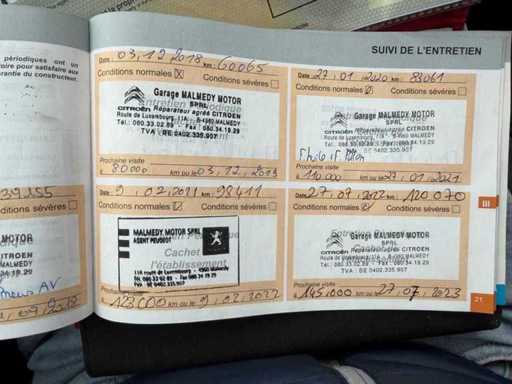 périodiques ont un
oire pour satisfaire aux
arantie du constructeur.
SUIVI DE L'ENTRETIEN
Date 03.12.2018 km 60065
Conditions normales X Conditions sévères
Garage MALMEDY MOTOR
SPRL
CITROËN Réparateur agréé CITROEN
Route de Luxembourg, 11A - B-4960 MALMEDY
Tél.: 080.33.02.89 Fax: 080.34.19.29
TVA: BE 0402.335.907
Prochaine visite
à 80000 km ou le 03.12.2019
Date 27.01.2020 km 83061
Conditions normales X Conditions sévères
Garage MALMEDY MOTOR
SPRL
CITROËN Réparateur agréé CITROEN
Route de Luxembourg, 11A - B-4960 MALMEDY
Fax: 080.34.19.29
BE 0402.335.907
Prochaine visite
à 110.000 km ou le 27.01.2021
39255
Conditions sévères
MOTOR
CITROEN
MALMEDY
34.19.29
Pneus AV
Date 9.02.2021 km 98411
Conditions normales Conditions sévères
MALMEDY MOTOR SPRL
AGENT PEUGEOT
Cachet
l'établissement
11A route de Luxembourg - 4960 Malmedy
Tél. 080.33.02.89 - Fax 080.34.19.29
TVA BE 0402.335.907
à 123000 km ou le 9.02.2022
Date 27.07.2022 km 120070
Conditions normales Conditions sévères
Garage MALMEDY MOTOR
SPRL
CITROËN Réparateur agréé CITROEN
Route de Luxembourg, 11A - B-4960 MALMEDY
Tél.: 080.33.02.89 Fax: 080.34.19.29
TVA: BE 0402.335.907
Prochaine visite
à 145.000 km ou le 27.07.2023
III
21